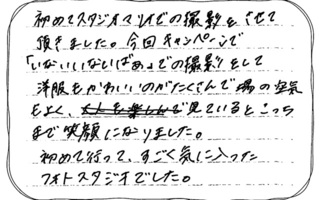 初めてスタジオマリオでの撮影をさせて
頂きました。今回キャンペーンで
「いないいないばぁ」での撮影をして
洋服もかわいいのがたくさんで場の空気
もよく、見ているとこっち
まで笑顔になりました。
初めて行って、すごく気に入った
フォトスタジオでした。